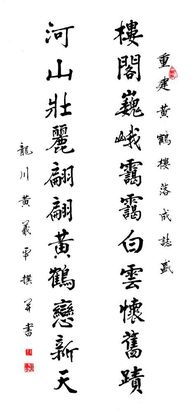 重建黃鶴樓落成誌盛
樓閣巍峨靄靄白雲懷舊蹟
河山壯麗翩翩黃鶴戀新天
龍川黃義平撰並書